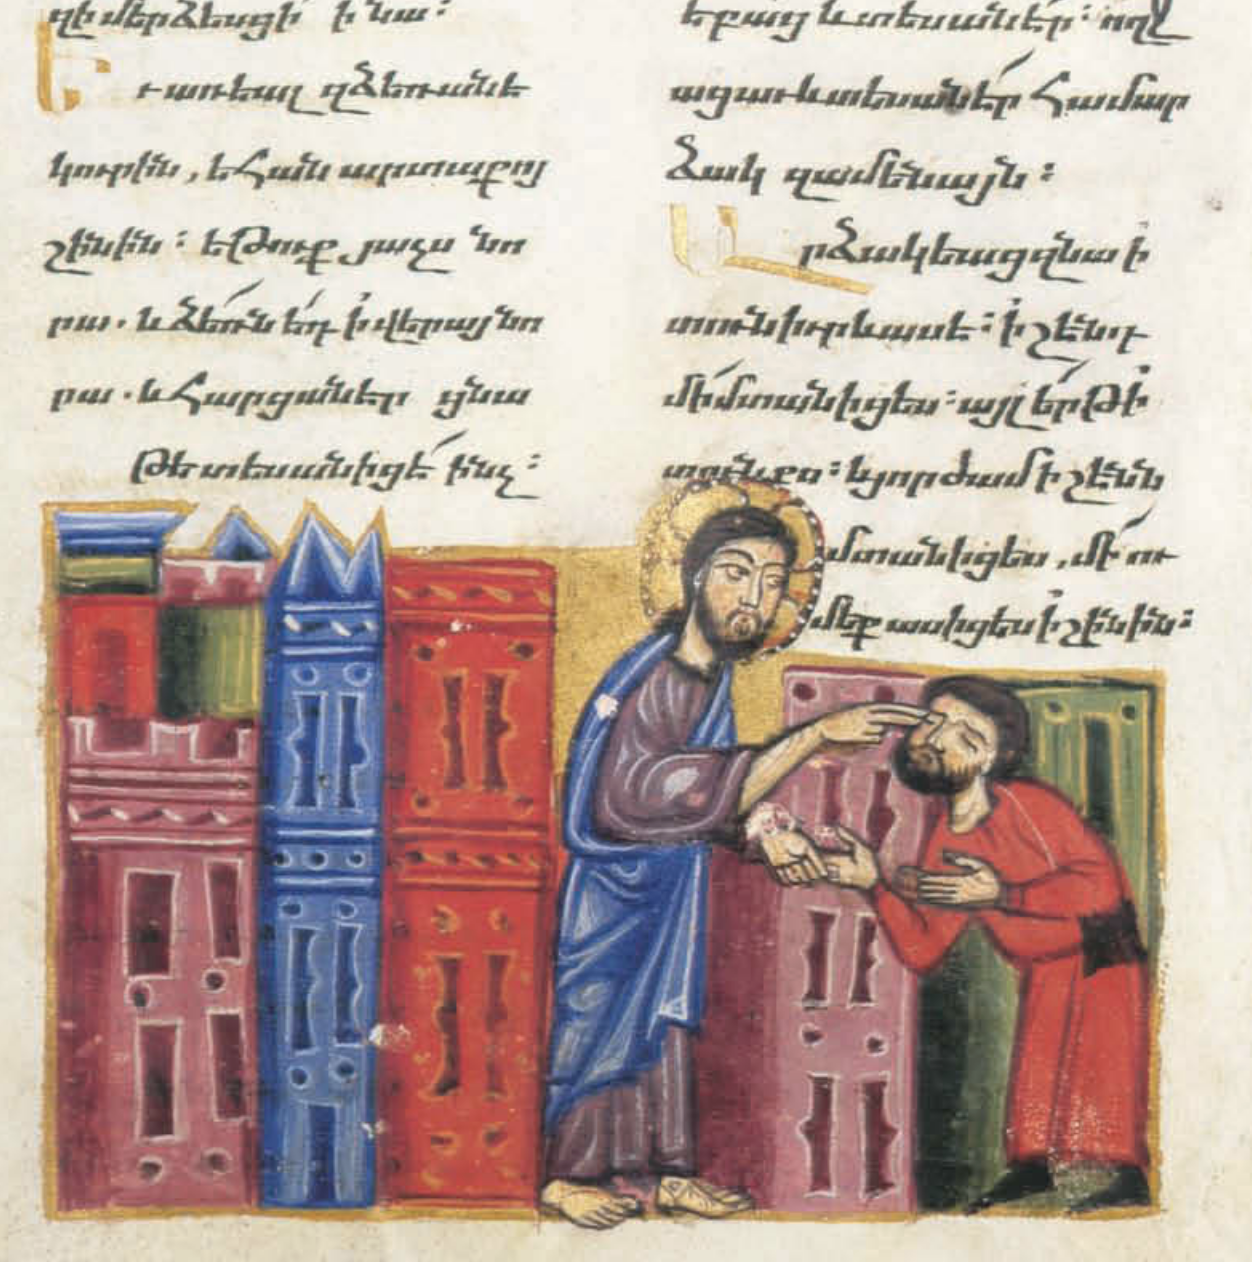 զի մերձեսցի ի նա։
Եւ առեալ զձեռանէ
կուրին, եհան արտաքոյ
շինին։ եթուք յաչս նո
րա. և ձեռն եդ ի վերայ նո
րա. և հարցանէր ցնա
թե տեսանիցէ ինչ։
եբաց և տեսանէր։ ողջ
ացաւ և տեսանէր համար
ձակ զամենայն։
Արձակեաց զնա ի
տուն իւր և ասէ։ ի շէնդ
մի մտանիցես։ այլ երթ ի
տուն քո։ և յորժամ ի շէնն
մտանիցես, մի ու
մեք ասիցես ի շինին։